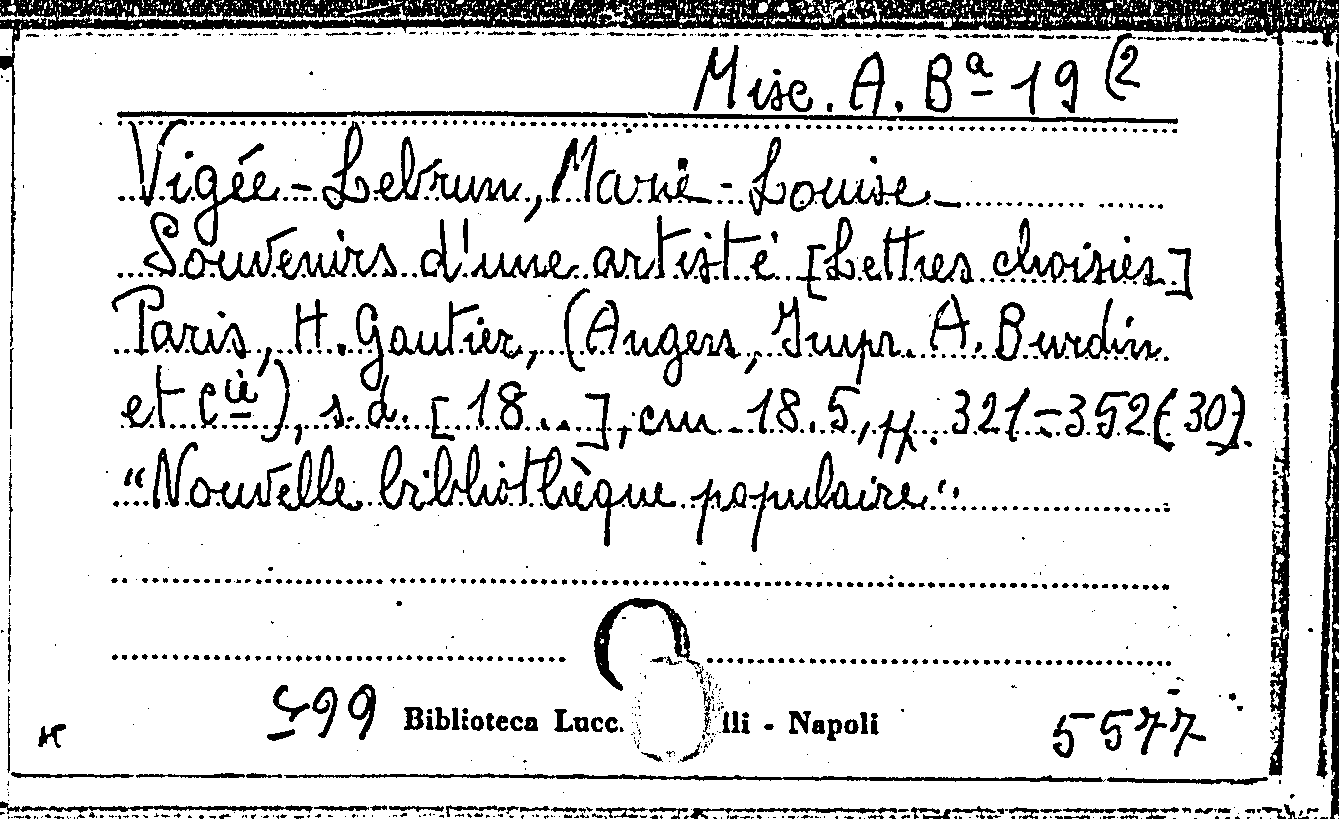 Misc. A. Bª 19 (2
Vigée-Lebrun, Marie-Louise
Souvenirs d'une artiste [Lettres choisies]
Paris, H. Gautier, (Angers, Impr. A. Burdin
et Cie), s.d. [18..], cm. 18.5, pp. 321-352 (30).
"Nouvelle bibliothèque populaire".
99 Biblioteca Lucc. lli - Napoli 5577